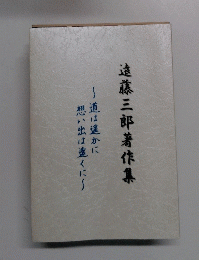 遠藤三郎著作集
～道は遙かに
想い出は遠くに～